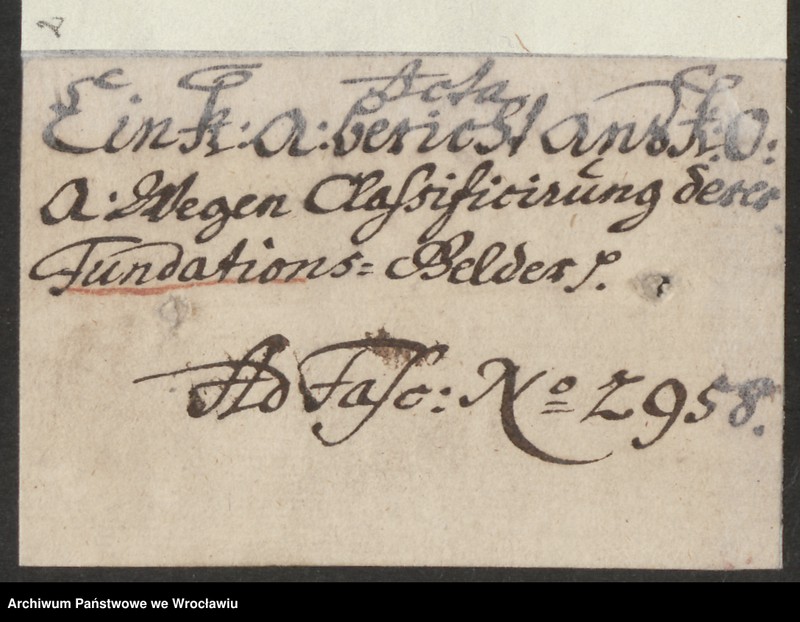 2
Acta
Ein K: A: bericht an das K: O:
A: Wegen Classificirung derer
Fundations= Gelder p.
Ad Fasc: No 2958.
Archiwum Państwowe we Wrocławiu